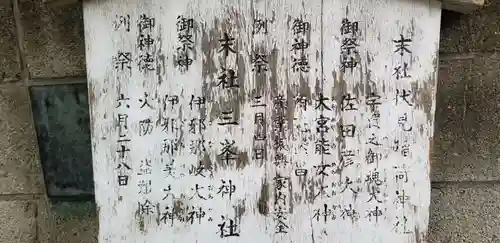 末社 伏見稲荷神社
御祭神 宇迦之御魂大神
佐田彦大神
大宮能女大神
御神徳
産業振興 家内安全
例祭 三月 日
末社 三峯神社
御祭神 伊邪那岐大神
伊邪那美大神
御神徳 火防 盗難除
例祭 六月二十八日